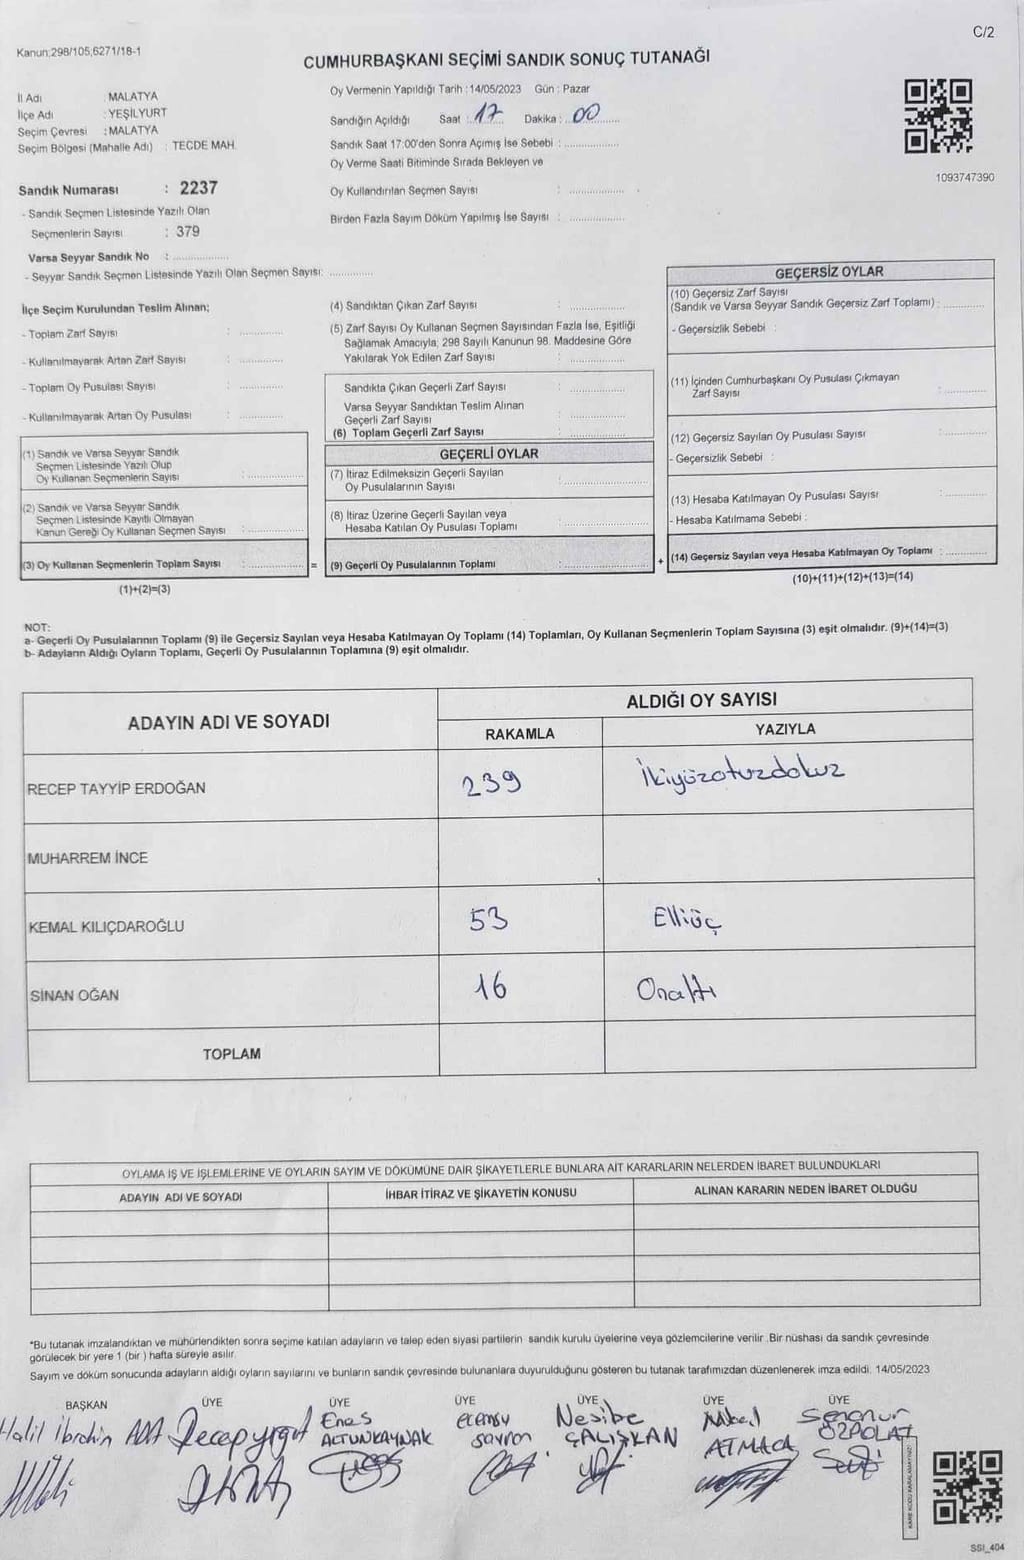 C/2
Kanun:298/105;6271/18-1
CUMHURBAŞKANI SEÇİMİ SANDIK SONUÇ TUTANAĞI
İl Adı : MALATYA
İlçe Adı : YEŞİLYURT
Seçim Çevresi : MALATYA
Seçim Bölgesi (Mahalle Adı) : TECDE MAH.
Oy Vermenin Yapıldığı Tarih :14/05/2023 Gün : Pazar
Sandığın Açıldığı Saat : 17 Dakika : 00
Sandık Saat 17:00'den Sonra Açımış İse Sebebi :
Oy Verme Saati Bitiminde Sırada Bekleyen ve
Oy Kullandırılan Seçmen Sayısı :
Birden Fazla Sayım Döküm Yapılmış İse Sayısı :
1093747390
Sandık Numarası : 2237
- Sandık Seçmen Listesinde Yazılı Olan
Seçmenlerin Sayısı : 379
Varsa Seyyar Sandık No :
- Seyyar Sandık Seçmen Listesinde Yazılı Olan Seçmen Sayısı:
İlçe Seçim Kurulundan Teslim Alınan;
- Toplam Zarf Sayısı :
- Kullanılmayarak Artan Zarf Sayısı :
- Toplam Oy Pusulası Sayısı :
- Kullanılmayarak Artan Oy Pusulası :
(1) Sandık ve Varsa Seyyar Sandık
Seçmen Listesinde Yazılı Olup
Oy Kullanan Seçmenlerin Sayısı :
(2) Sandık ve Varsa Seyyar Sandık
Seçmen Listesinde Kayıtlı Olmayan
Kanun Gereği Oy Kullanan Seçmen Sayısı :
(3) Oy Kullanan Seçmenlerin Toplam Sayısı :
(1)+(2)=(3)
(4) Sandıktan Çıkan Zarf Sayısı :
(5) Zarf Sayısı Oy Kullanan Seçmen Sayısından Fazla İse, Eşitliği
Sağlamak Amacıyla; 298 Sayılı Kanunun 98. Maddesine Göre
Yakılarak Yok Edilen Zarf Sayısı :
Sandıkta Çıkan Geçerli Zarf Sayısı :
Varsa Seyyar Sandıktan Teslim Alınan
Geçerli Zarf Sayısı :
(6) Toplam Geçerli Zarf Sayısı :
GEÇERLİ OYLAR
(7) İtiraz Edilmeksizin Geçerli Sayılan
Oy Pusulalarının Sayısı :
(8) İtiraz Üzerine Geçerli Sayılan veya
Hesaba Katılan Oy Pusulası Toplamı :
= (9) Geçerli Oy Pusulalarının Toplamı :
GEÇERSİZ OYLAR
(10) Geçersiz Zarf Sayısı
(Sandık ve Varsa Seyyar Sandık Geçersiz Zarf Toplamı) :
- Geçersizlik Sebebi :
(11) İçinden Cumhurbaşkanı Oy Pusulası Çıkmayan
Zarf Sayısı :
(12) Geçersiz Sayılan Oy Pusulası Sayısı :
- Geçersizlik Sebebi :
(13) Hesaba Katılmayan Oy Pusulası Sayısı :
- Hesaba Katılmama Sebebi :
+ (14) Geçersiz Sayılan veya Hesaba Katılmayan Oy Toplamı :
(10)+(11)+(12)+(13)=(14)
NOT:
a- Geçerli Oy Pusulalarının Toplamı (9) ile Geçersiz Sayılan veya Hesaba Katılmayan Oy Toplamı (14) Toplamları, Oy Kullanan Seçmenlerin Toplam Sayısına (3) eşit olmalıdır. (9)+(14)=(3)
b- Adayların Aldığı Oyların Toplamı, Geçerli Oy Pusulalarının Toplamına (9) eşit olmalıdır.
ADAYIN ADI VE SOYADI
ALDIĞI OY SAYISI
RAKAMLA YAZIYLA
RECEP TAYYİP ERDOĞAN 239 İkiyüzotuzdokuz
MUHARREM İNCE
KEMAL KILIÇDAROĞLU 53 Elliüç
SİNAN OĞAN 16 Onaltı
TOPLAM
OYLAMA İŞ VE İŞLEMLERİNE VE OYLARIN SAYIM VE DÖKÜMÜNE DAİR ŞİKAYETLERLE BUNLARA AİT KARARLARIN NELERDEN İBARET BULUNDUKLARI
ADAYIN ADI VE SOYADI İHBAR İTİRAZ VE ŞİKAYETİN KONUSU ALINAN KARARIN NEDEN İBARET OLDUĞU
*Bu tutanak imzalandıktan ve mühürlendikten sonra seçime katılan adayların ve talep eden siyasi partilerin sandık kurulu üyelerine veya gözlemcilerine verilir .Bir nüshası da sandık çevresinde
görülecek bir yere 1 (bir ) hafta süreyle asılır.
Sayım ve döküm sonucunda adayların aldığı oyların sayılarını ve bunların sandık çevresinde bulunanlara duyurulduğunu gösteren bu tutanak tarafımızdan düzenlenerek imza edildi. 14/05/2023
BAŞKAN ÜYE ÜYE ÜYE ÜYE ÜYE ÜYE
Halil İbrahim ADA Recep yigit Enes Nesibe Senanur
ALTUNKAYNAK ÇALIŞKAN ATMACA ÖZPOLAT
KARE KODU KARALAMAYINIZ
SSI_404